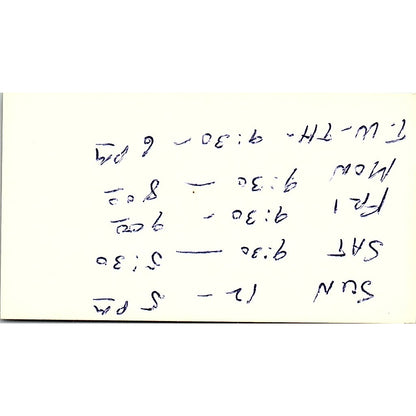 SUN 12 - 5 PM
SAT 9:30 — 5:30
FRI 9:30 - 900
MON 9:30 - 800
T-W-TH- 9:30-6 PM